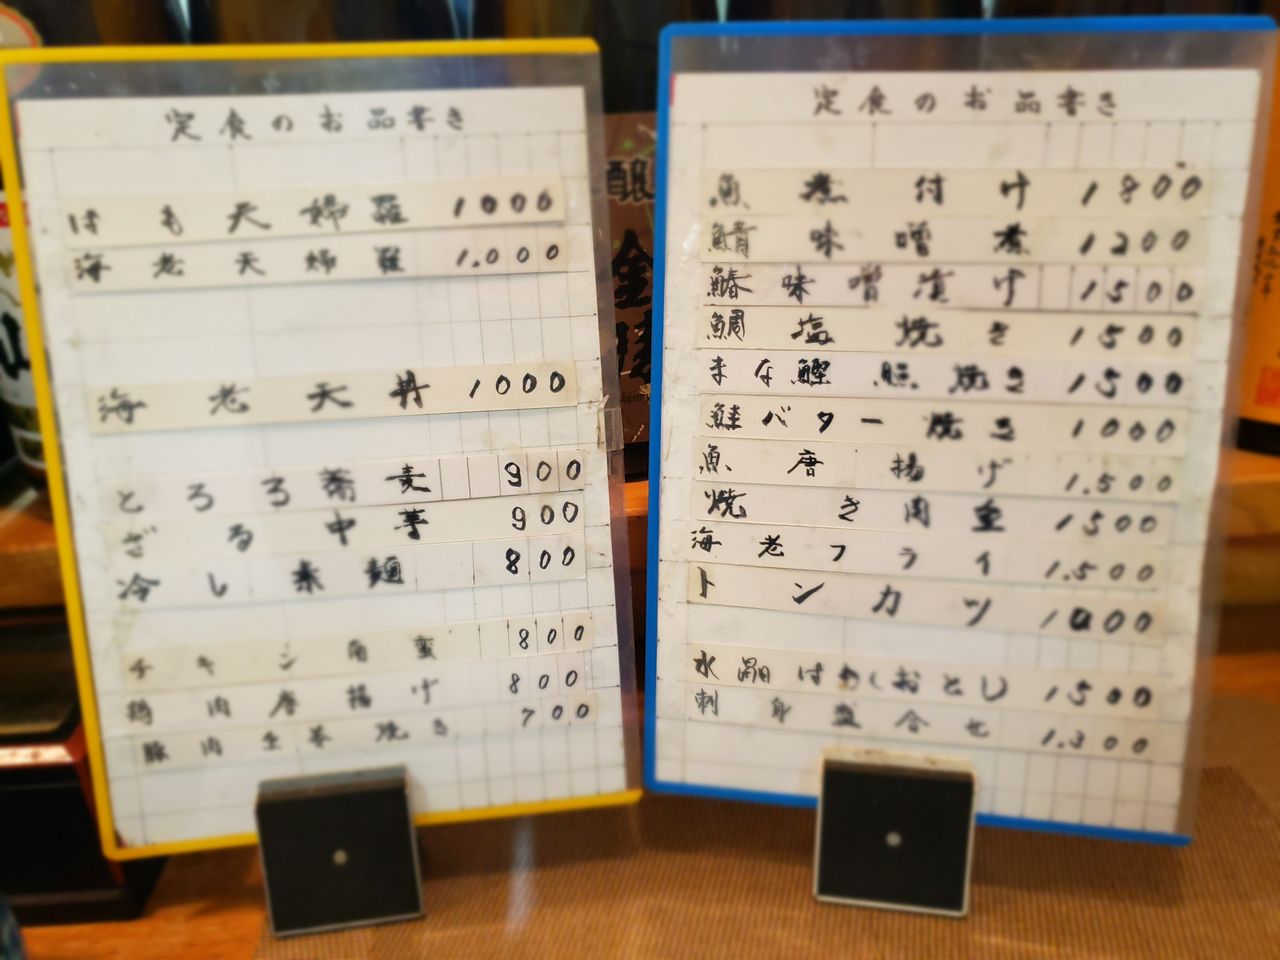 定食のお品書き
はも天婦羅 1000
海老天婦羅 1.000
海老天丼 1000
とろろ蕎麦 900
ざる中華 900
冷し素麺 800
チキン南蛮 800
鶏肉唐揚げ 800
豚肉生姜焼き 700
定食のお品書き
魚煮付け 1800
鯖味噌煮 1200
鰆味噌漬け 1500
鯛塩焼き 1500
まな鰹照焼き 1500
鮭バター焼き 1000
魚唐揚げ 1.500
焼き肉重 1500
海老フライ 1.500
トンカツ 1000
水晶はも(おとし) 1500
刺身盛合せ 1.300